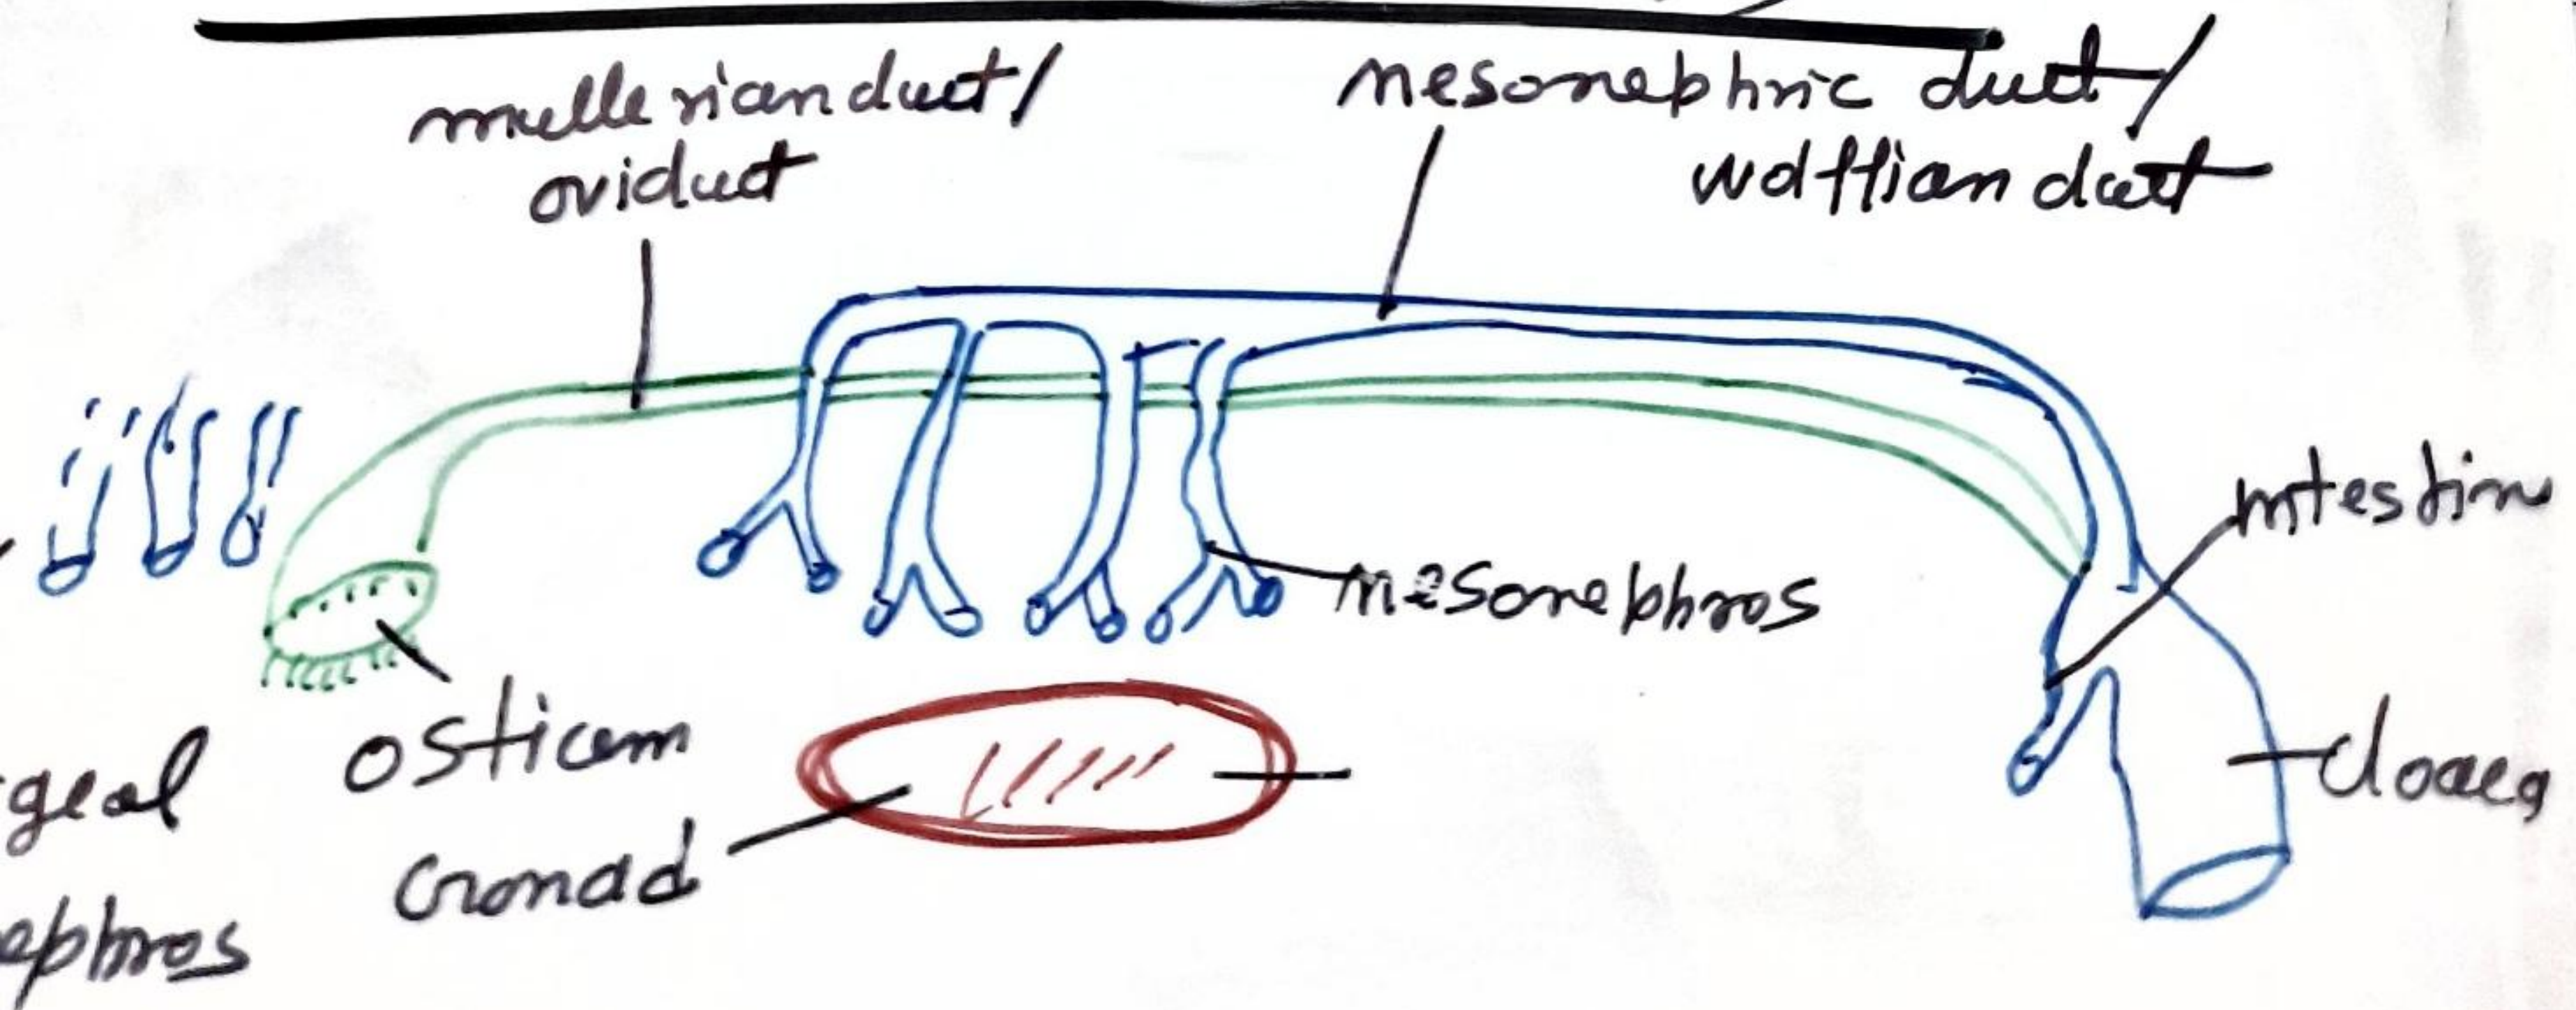 mullerian duct/
oviduct
mesonephric duct/
wolffian duct
intestin
mesonephros
osticum
geal
Gonad
cloaca
ephros